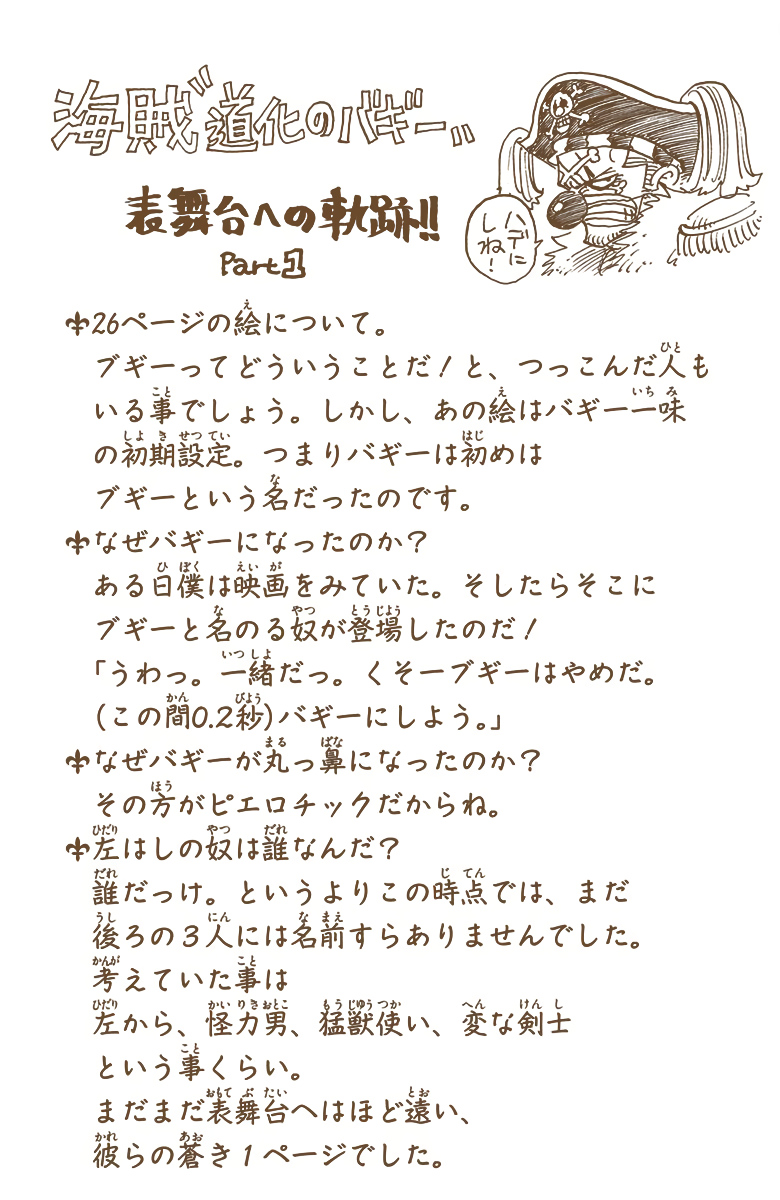 海賊"道化のバギー"
表舞台への軌跡!!
Part1
ハデに
しね!
⚜26ページの絵について。
ブギーってどういうことだ!と、つっこんだ人も
いる事でしょう。しかし、あの絵はバギー一味
の初期設定。つまりバギーは初めは
ブギーという名だったのです。
⚜なぜバギーになったのか?
ある日僕は映画をみていた。そしたらそこに
ブギーと名のる奴が登場したのだ!
「うわっ。一緒だっ。くそーブギーはやめだ。
(この間0.2秒)バギーにしよう。」
⚜なぜバギーが丸っ鼻になったのか?
その方がピエロチックだからね。
⚜左はしの奴は誰なんだ?
誰だっけ。というよりこの時点では、まだ
後ろの3人には名前すらありませんでした。
考えていた事は
左から、怪力男、猛獣使い、変な剣士
という事くらい。
まだまだ表舞台へはほど遠い、
彼らの蒼き1ページでした。